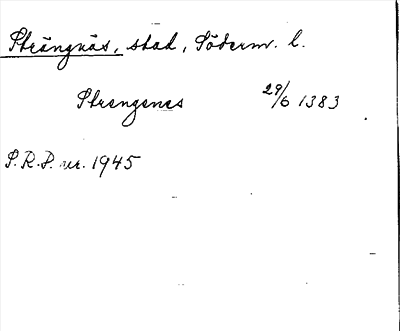 Strängnäs, stad, Söderm. l.
Strengenes 29/6 1383
S.R.P. nr. 1945